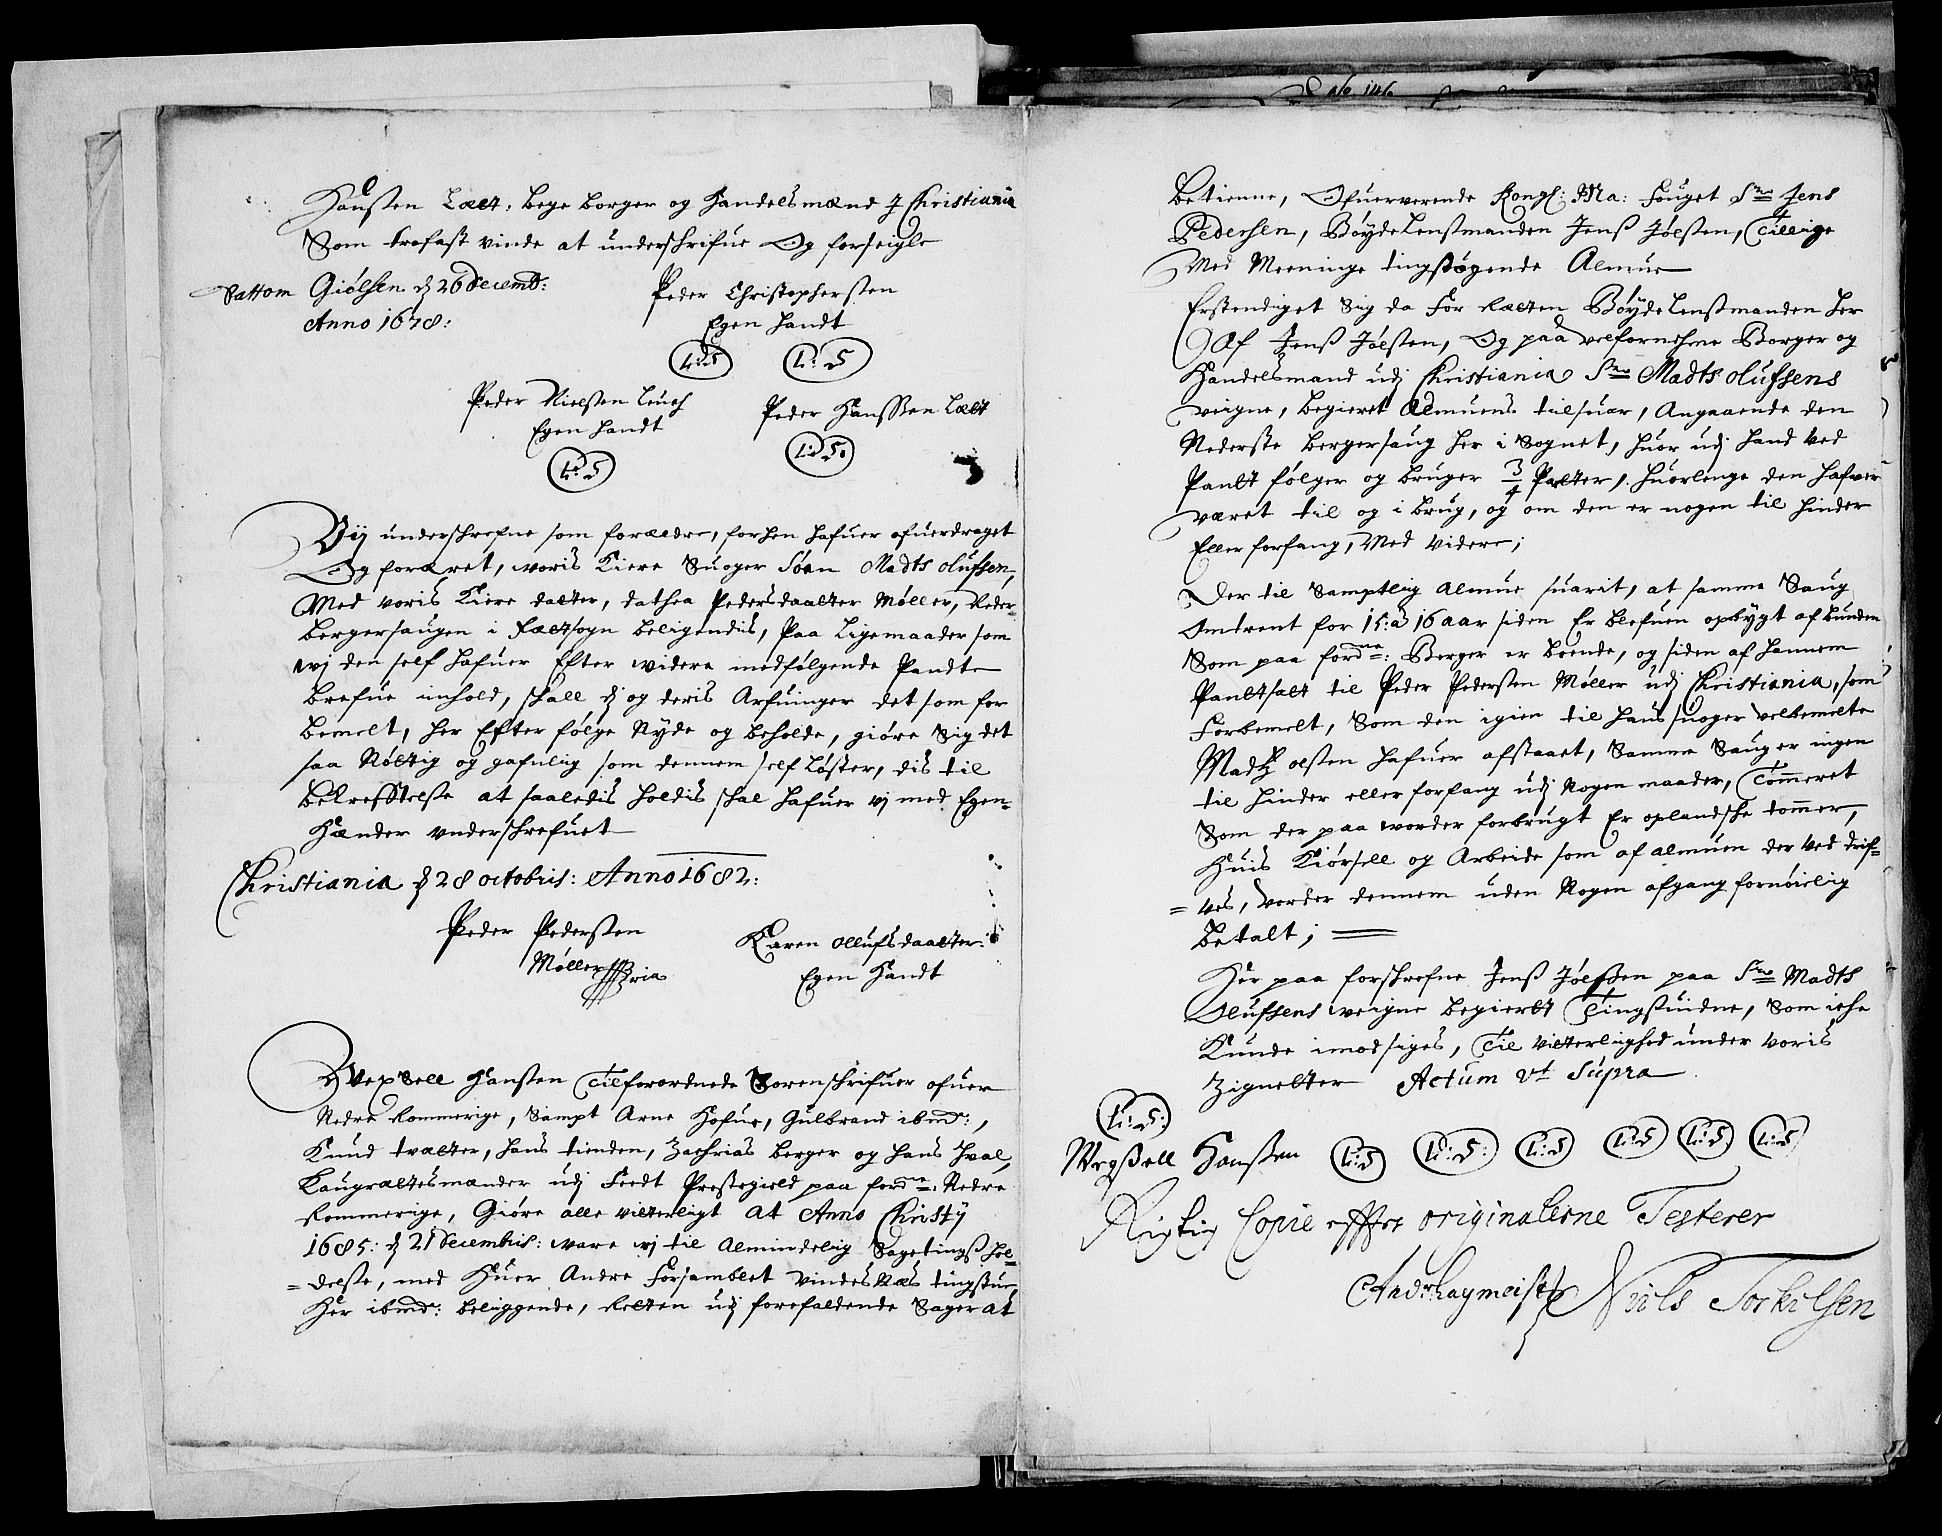 Hanssen Lælt, bege borger og Handelsmænd J Christiania
Som trofast vinde at underschrifue Og forseigle
Dattom Giølsen d 26 Decemb:
Anno 1678:
Peder Christophersen
Egen Handt
L:S L:S
Peder Nielssen Leuch
Egen Handt
Peder Hanssen Lælt
L:S L:S
Vij underschrefne som forældre, forhen hafuer ofuerdraget
Og foræret, woris Kiere Suoger Søn Madts Olufsen,
Med woris Kiere datter, dathea Pedersdaatter Møller, Neder-
bergersaugen i Fæltsogn beligendis, Paa Ligemaader som
wj den self hafuer Efter widere medfølgende Pandte
brefue inhold, schall d og deris Arfuinger det som for
bemelt, her Efter følge Nyde og beholde, giøre Sig det
saa Nøttig og gafnlig som dennem self Løster, dis til
Bekrefftelse at saaledis holdis schal hafuer wj med Egen-
Hænder vnderschrefuet
Christiania d 28 octobris: Anno 1682:
Peder Pederssen
Møller
Karen ollufsdaatter:
Egen Handt
Wexsell Hanssen Tilforordnede Sorenschrifuer ofuer
Nedre Rommerige, Sampt Arne Hofue, Gulbrand ibmd:,
Knud trætter, hans tienden, Zachrias berger og hans Hval,
Laugrættesmænder udj Feedt Prestegield paa fordne: Nedre
Rommerige, Giøre alle witterligt At Anno Christj
1685: d 21 Decembris: ware wj til Almindelig Sagetingß hol-
= delße, med Huer Andre forsamblet vindesNæs tingstue
Her ibmd: beliggende, Retten udj forefaldende Sager at
Betienne, Ofuerwerende Kongl: Ma: Fouget Sr Jens
Pedersen, Bøydelensmanden Jenß Jølßen, Tillige
Med Meeninge tingsøgende Almue
Erstendiget Sig da for Rætten Bøydelensmanden her
Af Jenß Jølssen, Og paa velfornehme Borger og
Handelsmand udj Christiania Sr Madts Olufsens
veigne, begieret Almuens tilsuar, Angaaende den
Nederste bergersaug her i Sognet, huor udj hand ved
Pantt følger og bruger 3/4 Parter, huorlenge den hafuer
været til og i brug, og om den er nogen til hinder
Eller forfang, Med videre;
Der til Samptlig Almue suarit, at samme Saug
omtrent for 15: a 16 aar siden Er blefuen opbygt af bunden
Som paa fordne: Berger er boende, og siden af hannem
Panttsatt til Peder Pederssen Møller udj Christiania, som
Forbemelt, Som den igien til hans suoger velbemelte
Madtz olssen hafuer afstaaet, Samme Saug er ingen
til hinder eller forfang udj Nogen maader, Tømmeret
Som der paa worder forbrugt Er oplandsche tømmer,
Huis Kiørsell og Arbeide som af almuen der ved drif-
= ves, worder dennem uden Nogen afgang fornøielig
betalt; =
Her paa forschrefne Jenß Jølßen paa Sr Madts
Olufsens weigne begiertt Tingsuidne, Som iche
Kunde imodsiges, Til vitterlighed under voris
Zignetter Actum Vt Supra
L:S:
Wexßell Hanßen L:S L:S: L:S L:S L:S L:S
Rigtig Copie effter originalerne Testerer
Niels Torkilsen